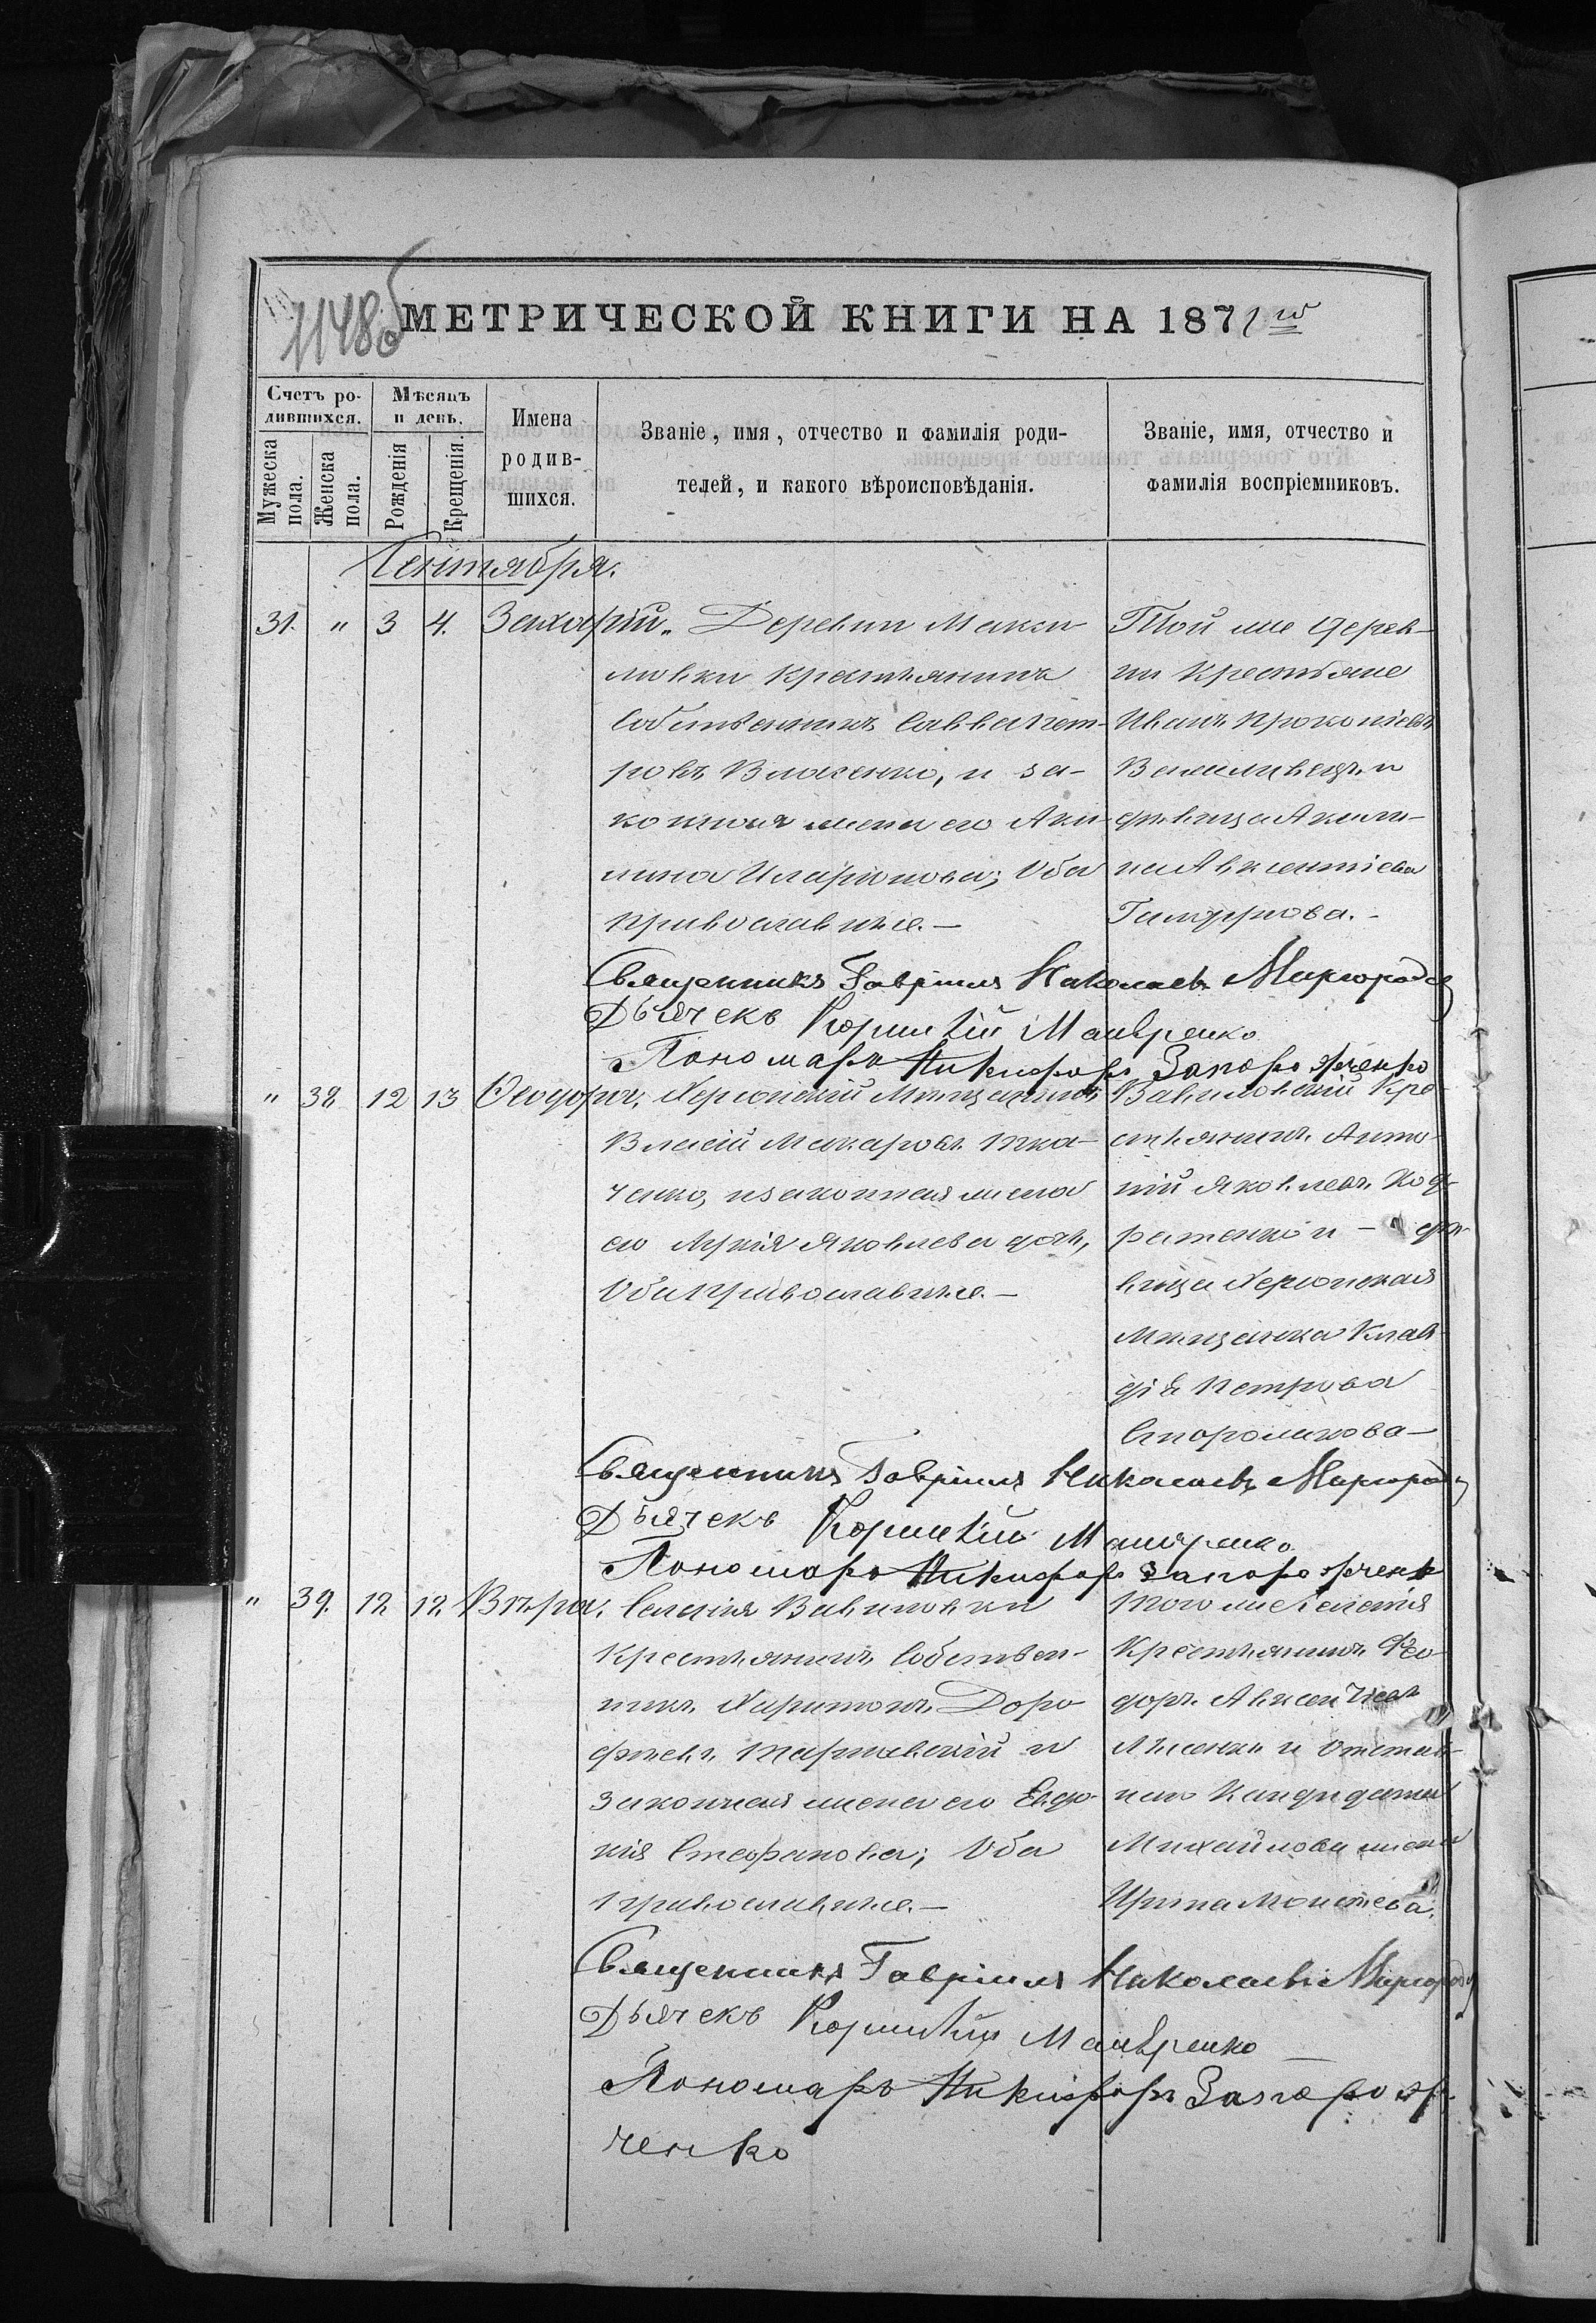 11486
МЕТРИЧЕСКОЙ КНИГИ НА 1871 го
Счетъ ро-
дившихся.
Мужеска
пола.
Женска
пола.
Мѣсяцъ
и день.
Рожденія
Крещенія.
Имена
родив-
шихся.
Званіе, имя, отчество и фамилія роди-
телей, и какого вѣроисповѣданія.
Званіе, имя, отчество и
фамилія воспріемниковъ.
Сентября.
31. " 3 4. Захарій. Деревни Макси
мовки крестьянинъ
собственникъ Савва Пет-
ровъ Власенко, и за-
конная жена его Аки-
лина Иларіонова; Оба
православные.—
Той же дерев-
ни крестьяне
Иванъ Прокопіевъ
и
дѣвица Акили-
на Авксентіева
Священникъ Гавріилъ Николаевъ Миргородс
Дьячекъ Корнилій
Пономарь Никифоръ Запорожченко
" 38 12 13 Ѳеодора, Херсонскій Мѣщанинъ
Власій Макаровъ Тка-
ченко, и законная жена
его Лукія Яковлева дочь,
Оба православные.—
Вавиловскій Кре-
стьянинъ Анто-
ній Яковлевъ Код-
ратенко и — дѣ-
вица Херсонская
Мѣщанка Клав-
дія Петрова
Сторожкова—
Священникъ Гавріилъ Николаевъ Миргородс
Дьячекъ Корнилій
Пономарь Никифоръ Запорожченк
" 39. 12 12. Вѣра, Селенія Вавиловки
крестьянинъ собствен-
никъ Харитонъ Доро
фѣевъ и
законная жена его Евдо-
кія Стефанова; Оба
православные.—
Того же селенія
крестьянинъ Ѳео-
доръ Авксентіевъ
Лысенко и отстав-
наго Кандидата
Михайлова жена
Ирина Моисеева.
Священникъ Гавріилъ Николаевъ Миргородс
Дьячекъ Корнилій
Пономарь Никифоръ Запорож-
ченко